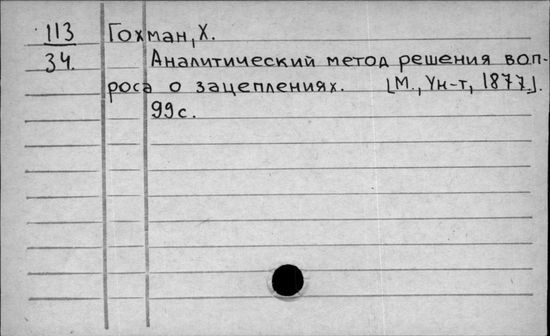 113 Гохман, Х.
34. Аналитический метод решения воп-
роса о зацеплениях. [М., Ун-т, 1877.].
99с.